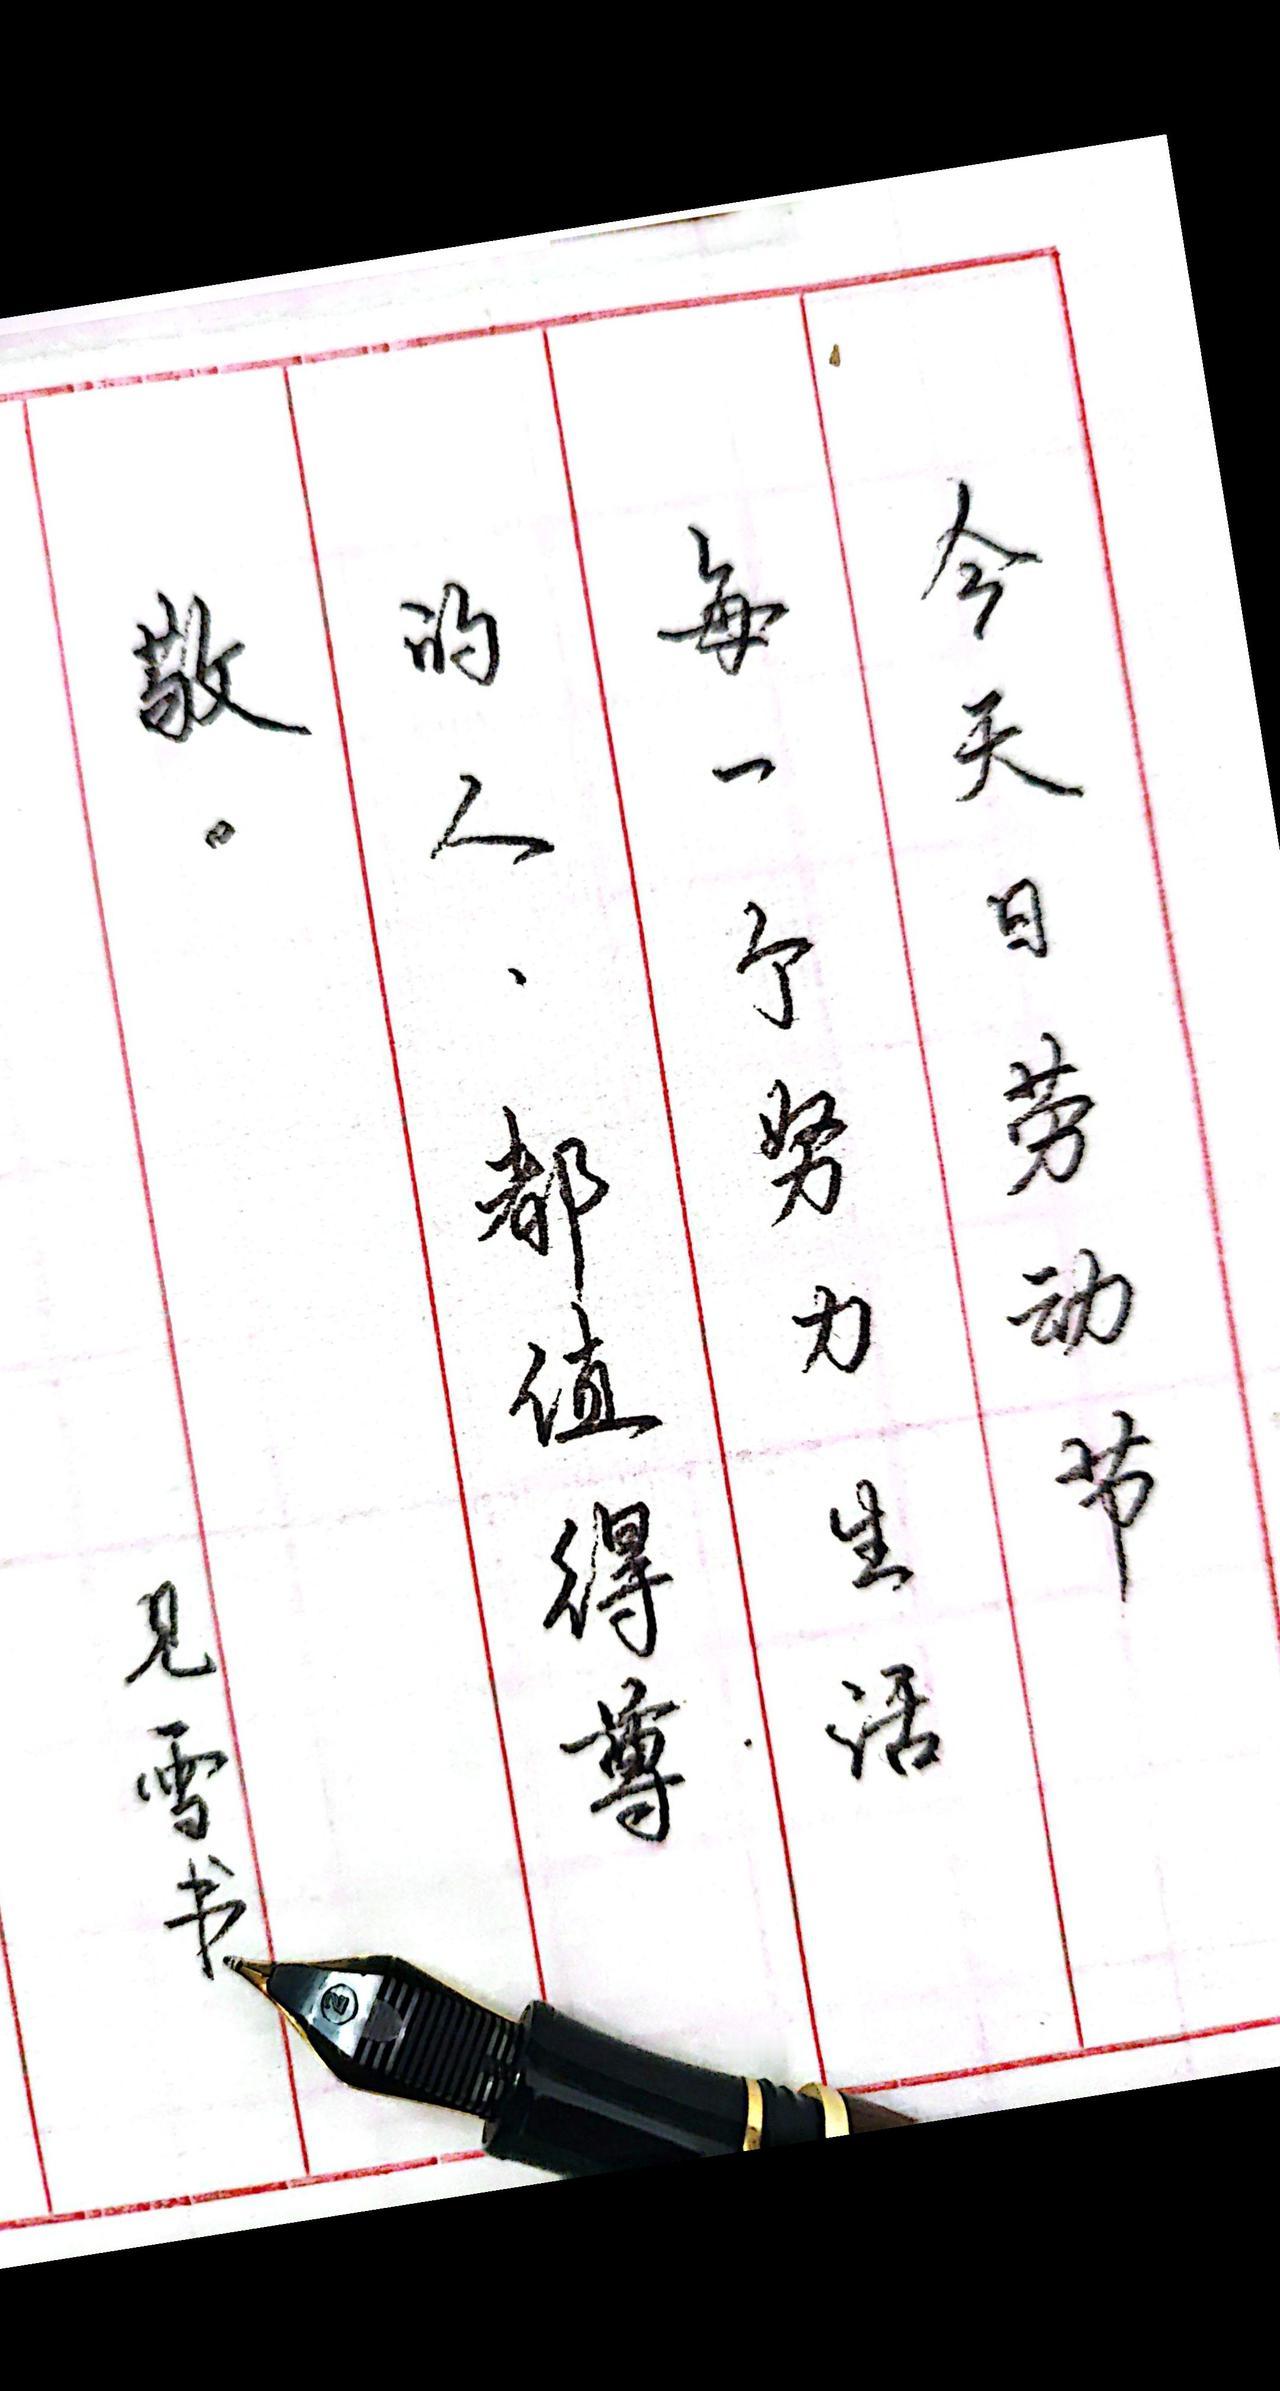 今天日劳动节
每一个努力生活
的人、都值得尊
敬。
见雪书